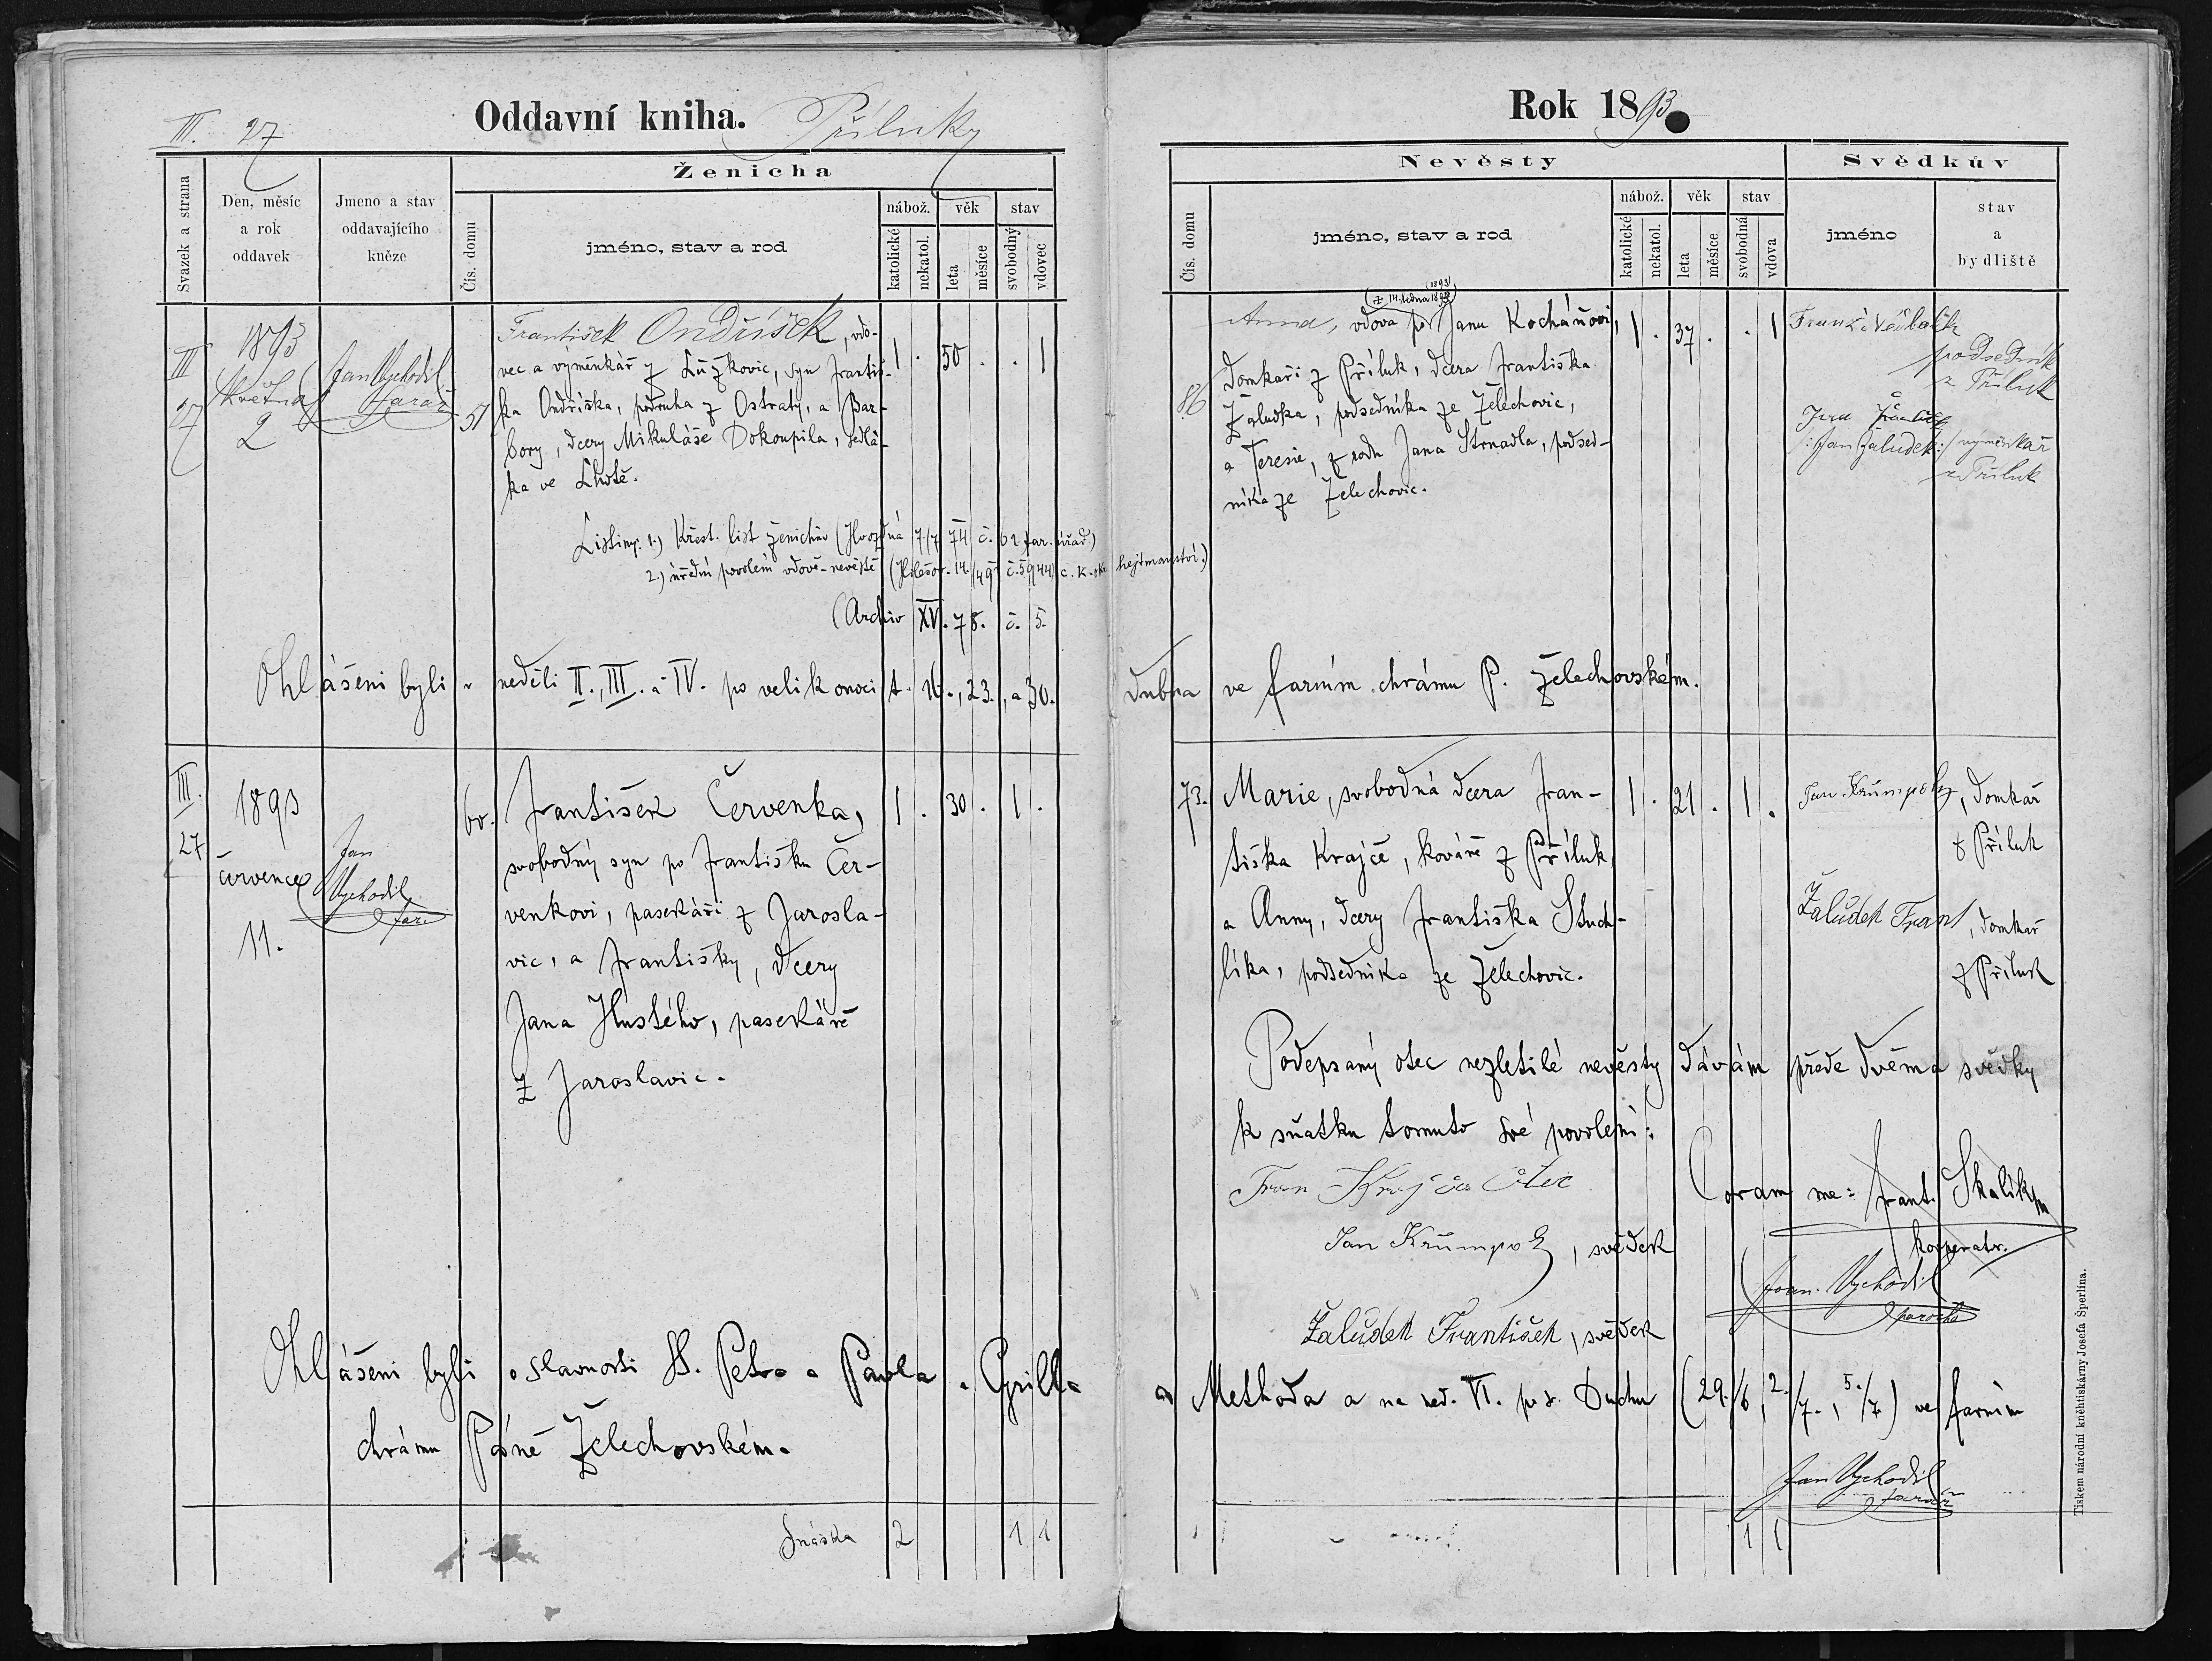 III. 27
Oddavní kniha. Příluky
Svazek a strana
Den, měsíc
a rok
oddavek
Jmeno a stav
oddavajícího
kněze
Ženicha
Čís. domu
jméno, stav a rod
nábož.
věk
stav
katolické
nekatol.
leta
měsíce
svobodný
vdovec
III
27
1893
Května
2
Jan Vychodil
farář
51
František Ondříšek, vdo-
vec a výměnkář z Lůžkovic, syn Františ-
ka Ondříška, podruha z Ostraty, a Bar-
bory, dcery Mikuláše Dokoupila, sedlá-
ka ve Lhotě.
1 . 50 . . 1
Listiny: 1.) Křest. list ženichův (Hvozdná 7./7 74 č. 62 far. úřad.)
2.) úřední povolení vdově-nevěstě (Holešov 14. č. 5944 c. k. hejtmanství.)
(Archiv XV. 78. č. 5.
Ohlášeni byli v neděli II., III. a IV. po velikonoci t. 16., 23., a 30.
III.
27
1893
července
11.
Jan
Vychodil
far.
60.
František Červenka,
svobodný syn po Františku Čer-
venkovi, pasekáři z Jarosla-
vic, a Františky, dcery
Jana Hustého, pasekáře
z Jaroslavic.
1 . 30 . 1 .
Ohlášeni byli o slavnosti SS. Petra a Pavla, Cyrilla
chrámu Páně Želechovském.
Snáška 2 1 1
Rok 1893
Nevěsty
Svědkův
Čís. domu
jméno, stav a rod
nábož.
věk
stav
katolické
nekatol.
leta
měsíce
svobodná
vdova
jméno
stav
a
bydliště
(1893)
86
Anna, vdova po Janu Kocháňovi,
domkaři z Příluk, dcera Františka
Žaludka, podsedníka ze Želechovic,
a Teresie, z rodu Jana Strnadla, podsed-
níka ze Želechovic.
1 . 37 . . 1
podsedník
z Příluk
/:Jan Žaludek:/ výměnkář
z Příluk
dubna ve farním chrámu P. Želechovském.
73.
Marie, svobodná dcera Fran-
tiška Krajče, kováře z Příluk
a Anny, dcery Františka Stuch-
líka, podsedníka ze Želechovic.
1 . 21 . 1 .
Jan Krůmpolz, domkař
z Příluk
Žalůdek Frant, domkař
z Příluk
Podepsaný otec nezletilé nevěsty dávám přede dvěma svědky
k sňatku tomuto své povolení:
Fran Krajča Otec
Coram me: Frant. Skalík
kooperator.
Jan Krůmpolz, svědek
Joan. Vychodil
parochus
Žalůdek František, svědek
a Methoda a na ned. VI. po s. Duchu (29./6, 2./7., 5./7) ve farním
Jan Vychodil
farář
1 1
Tiskem národní kněhtiskárny Josefa Šperlina.